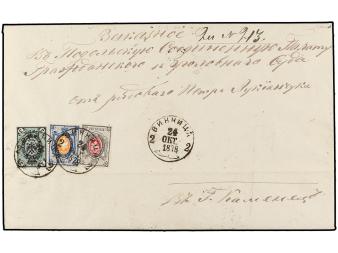 Заказное Дѣл № 213.
Въ Подольскую Соединенную Палату
Гражданского и Уголовнаго Суда
отъ рядоваго Петра Лукіянчука
ВИННИЦА
24
ОКТ.
1878
2 2
Въ Г. Каменецъ